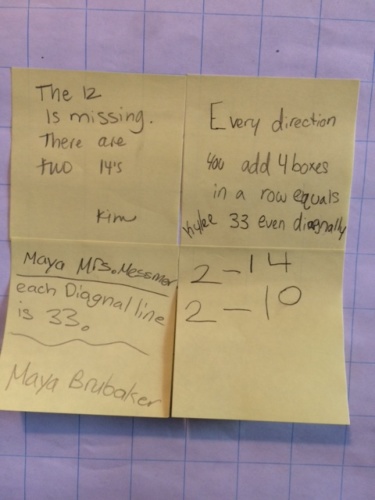 The 12
is missing.
There are
two 14's
Kim
Every direction
you add 4 boxes
in a row equals
Kylee 33 even diagnally
Maya Mrs. Messmer
each Diagnal line
is 33.
Maya Brubaker
2-14
2-10